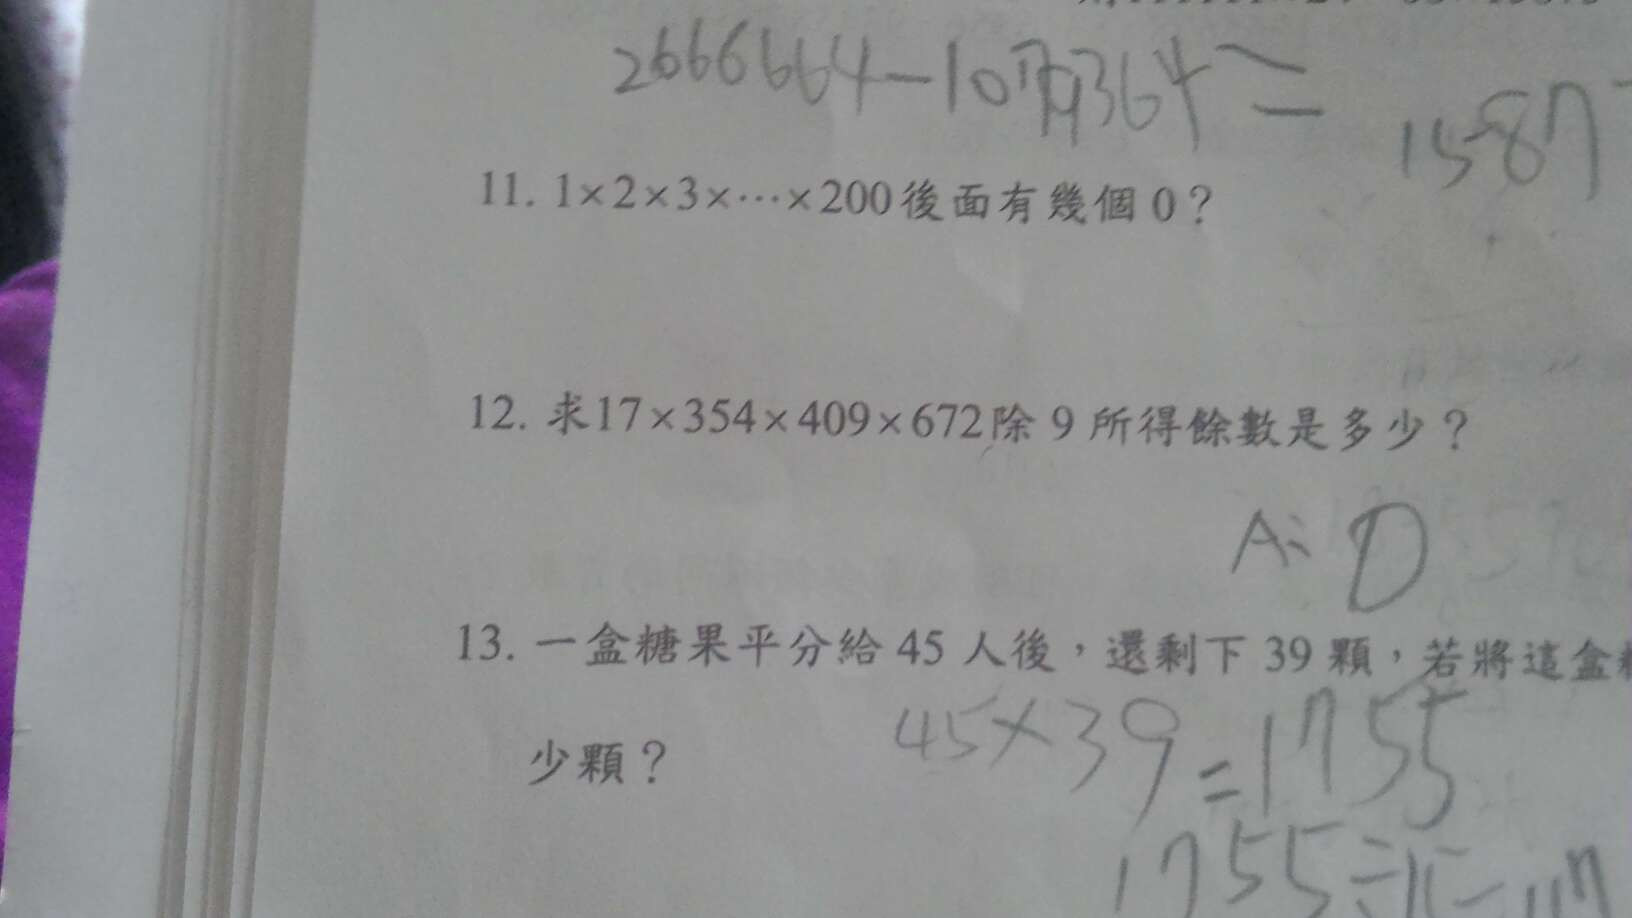 2666664-1079364=
1587
11. 1×2×3×⋯×200後面有幾個 0？
12. 求17×354×409×672除 9 所得餘數是多少？
A: 0
13. 一盒糖果平分給 45 人後，還剩下 39 顆，若將這盒
少顆？
45×39=1755
1755÷15=117